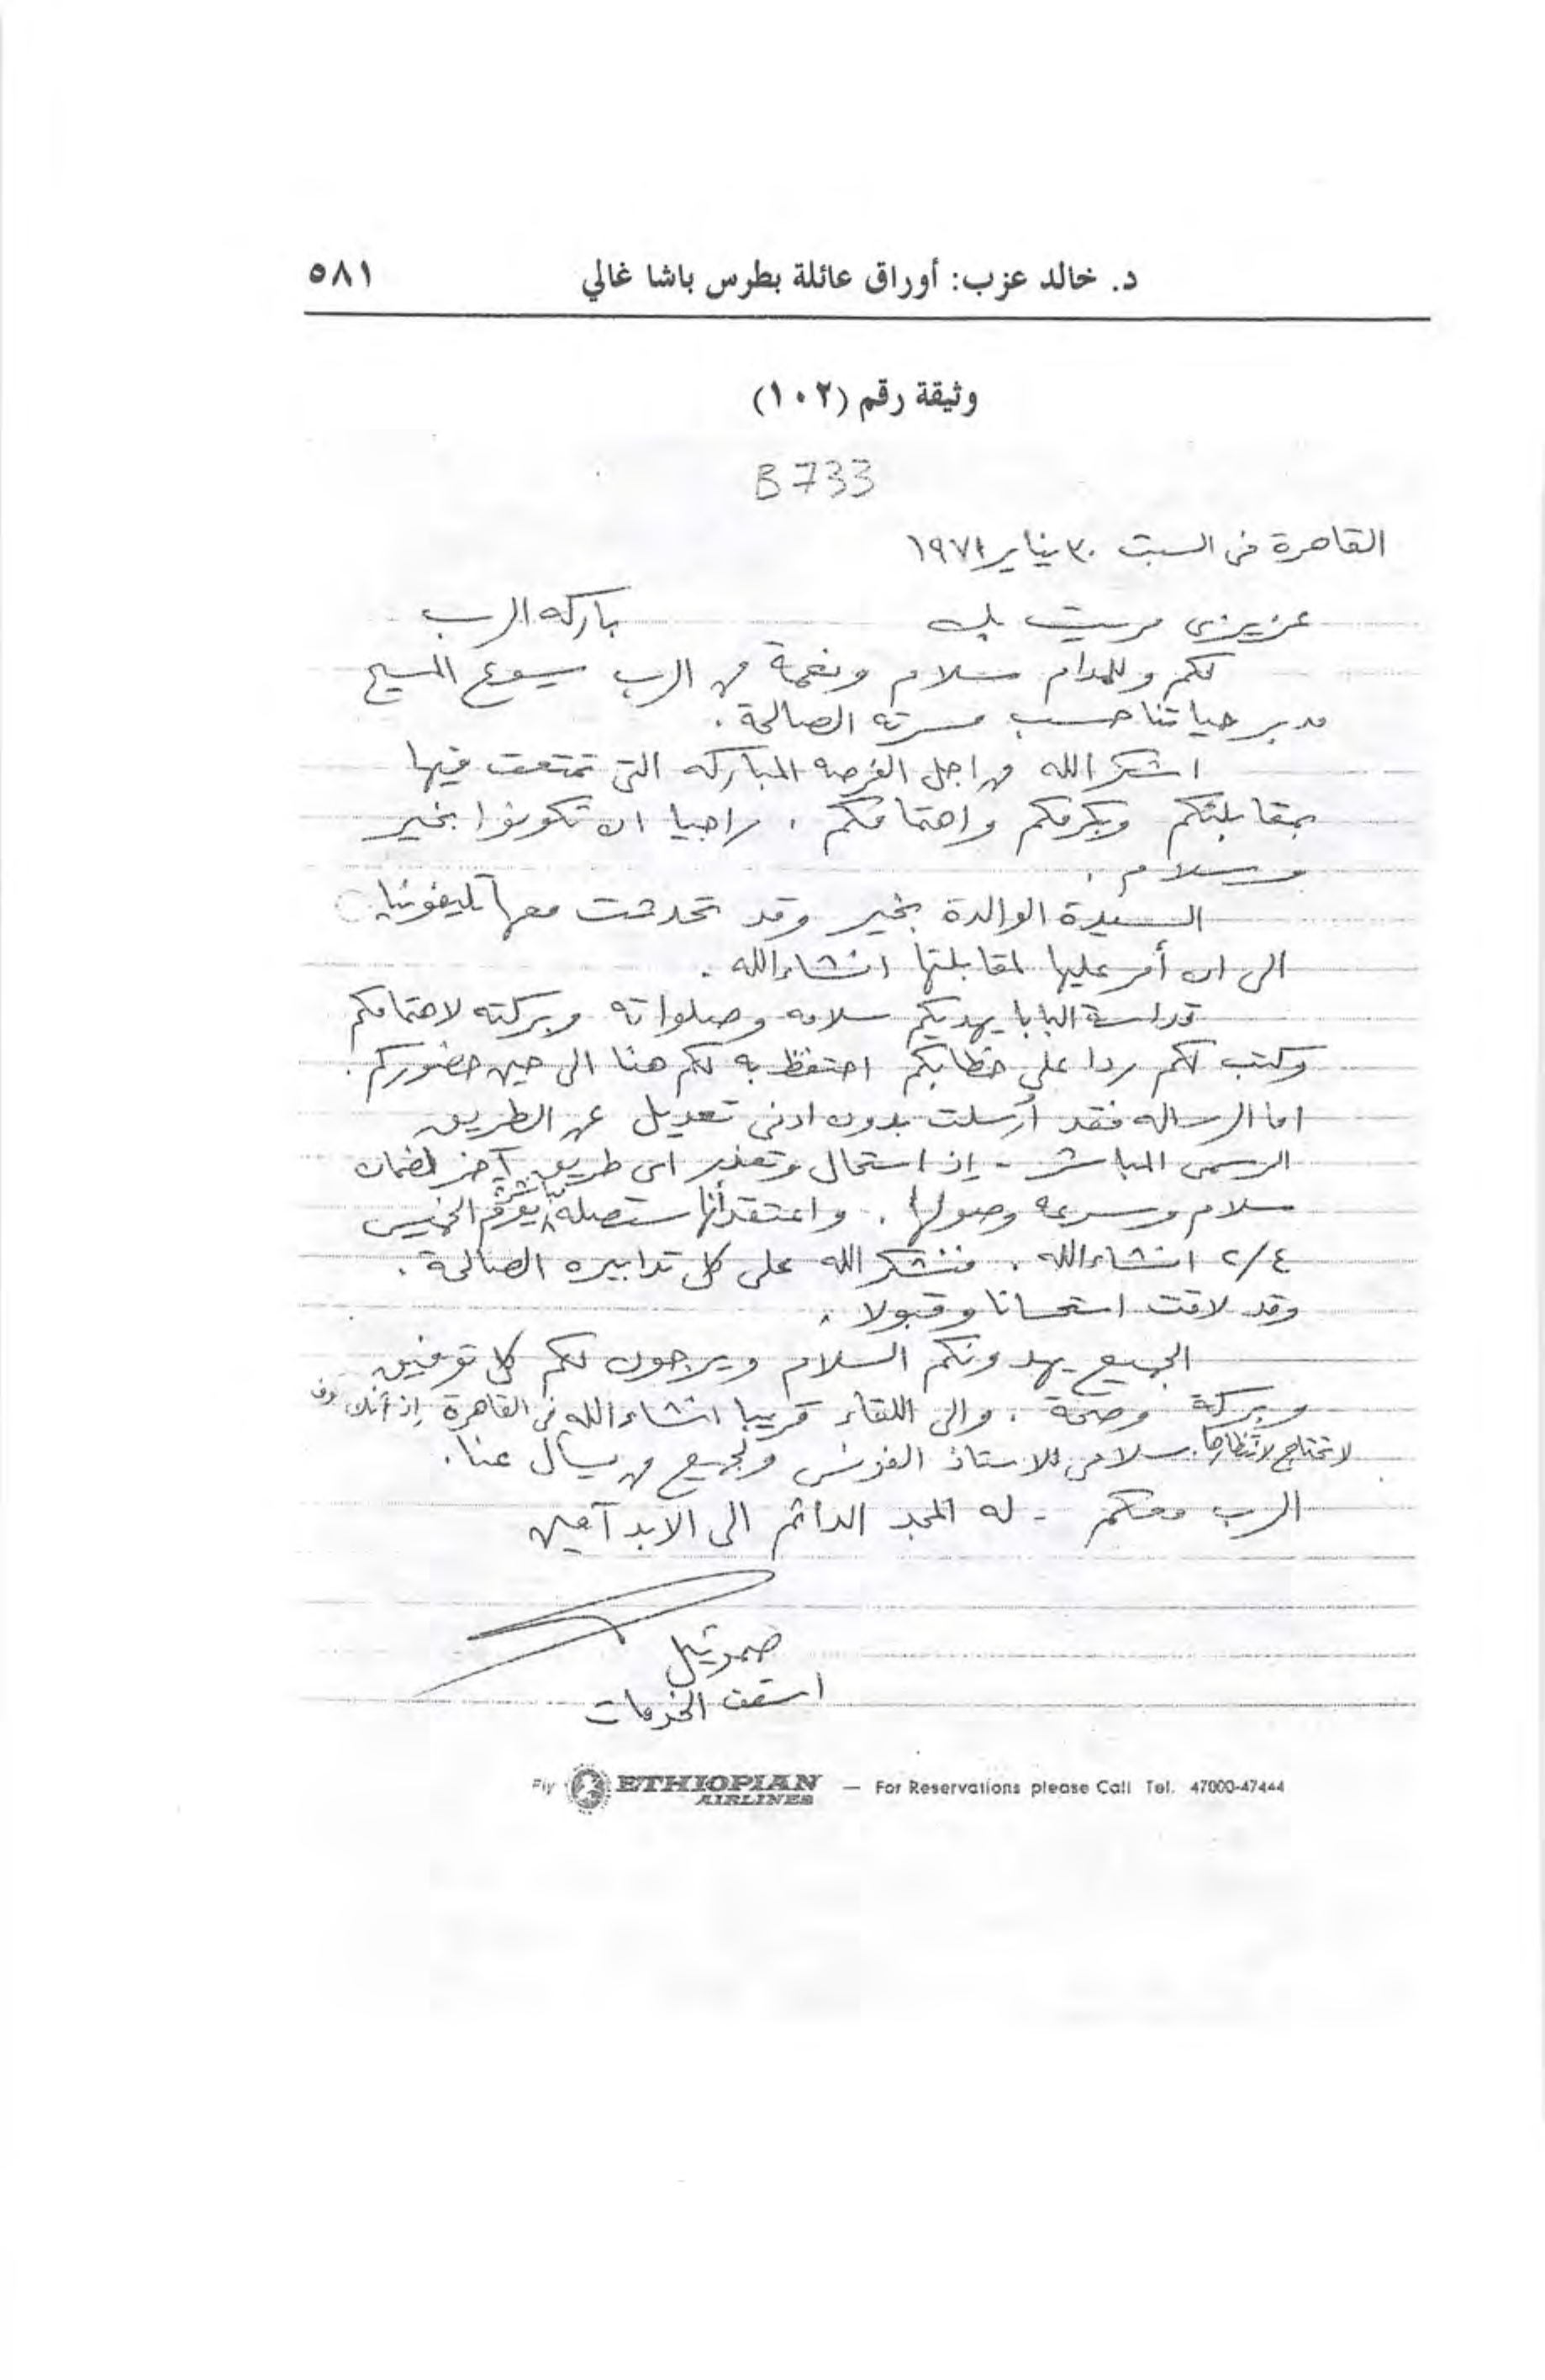 د. خالد عزب: أوراق عائلة بطرس باشا غالي
٥٨١
وثيقة رقم (١٠٢)
B 733
القاهرة فى السبت ٣٠ يناير ١٩٧١
عزيزى مريت بك باركه الرب
لكم وللمدام سلام ونعمة من الرب يسوع المسيح
مدبر حياتنا حسب مسرته الصالحة .
اشكر الله من اجل الفرصه المباركه التى تمتعت فيها
بمقابلتكم وبكرمكم واهتمامكم . راجيا ان تكونوا بخير
وسلام .
السيدة الوالدة بخير وقد تحدثت معها تليفونيا
الى ان أمر عليها لمقابلتها انشاءالله .
قداسة البابا يهديكم سلامه وصلواته وبركته لاهتمامكم
وكتب لكم ردا على خطابكم احتفظ به لكم هنا الى حين حضوركم .
اما الرساله فقد أرسلت بدون ادنى تعديل عن الطريق
الرسمى المباشر - إذ استحال وتعذر اى طريق آخر لضمان
سلام وسرعه وصولها . واعتقد أنها ستصله مباشرة يوم الخميس
٢/٤ انشاءالله . فنشكر الله على كل تدابيره الصالحة .
وقد لاقت استحسانا وقبولا .
الجميع يهدونكم السلام ويرجون لكم كل توفيق
وبركة وصحة . والى اللقاء قريبا انشاءالله فى القاهرة إذ أنك سوف
لا تحتاج لانتظارها . سلامى للاستاذ الفونس ولجميع من يسأل عنا .
الرب معكم - له المجد الدائم الى الابد آمين
صموئيل
اسقف الخدمات
Fly ETHIOPIAN AIRLINES — For Reservations please Call Tel. 47000-47444